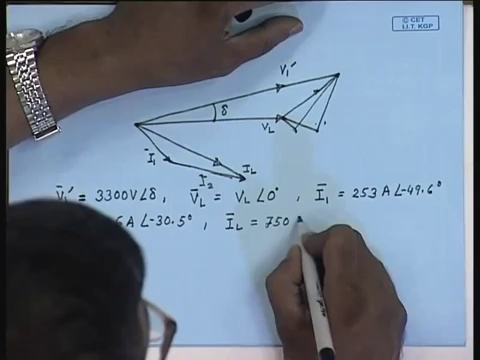 © CET
I.I.T. KGP
V₁'
δ
V_L
Ī₁
I_L
Ī₂
V̄₁' = 3300V∠δ , V̄_L = V_L∠0° , Ī₁ = 253 A∠-49.6°
6A∠-30.5° , Ī_L = 750